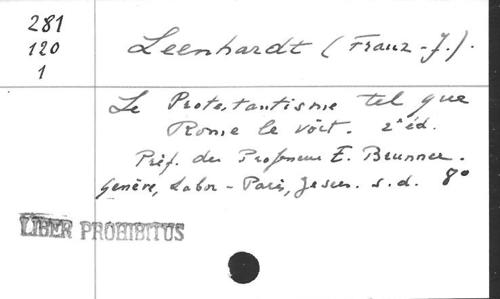 281
120
1
Leenhardt (Franz-J.).
Le Protestantisme tel que
Rome le voit. 2e éd.
Préf. du Professeur E. Brunner.
Genève, Labor - Paris, Jesers. s.d. 8°
LIBER PROHIBITUS